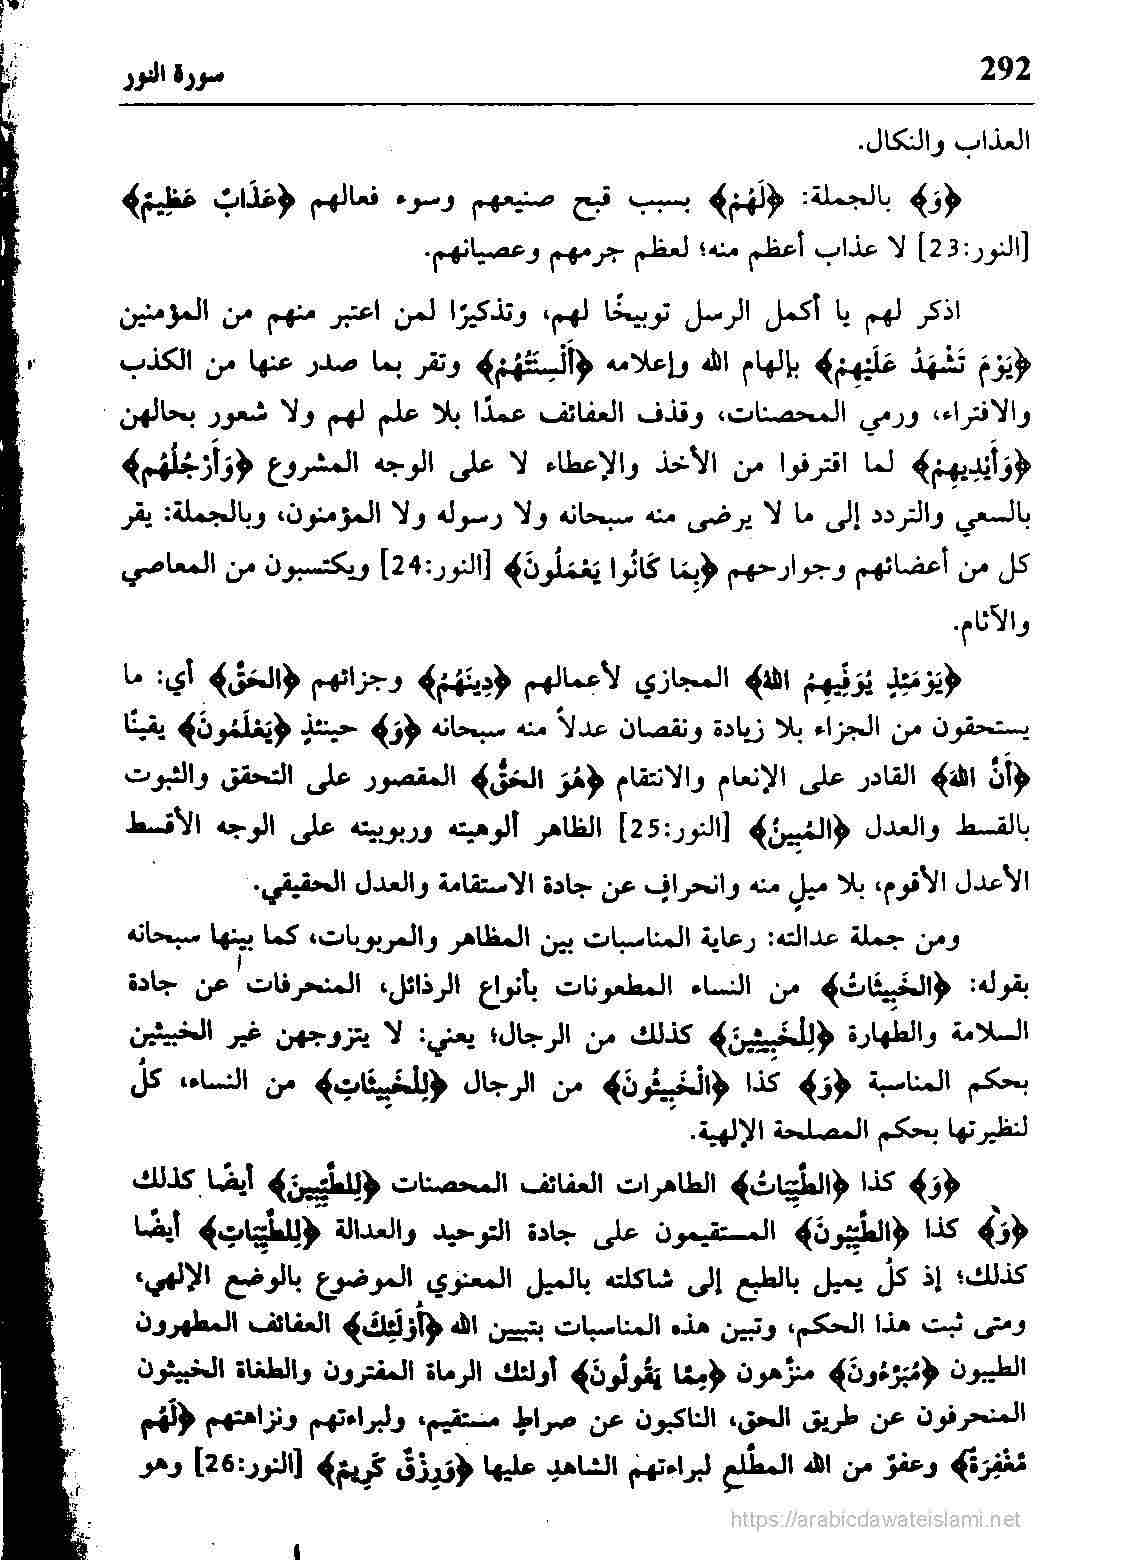 292
سورة النور
العذاب والنكال.
﴿وَ﴾ بالجملة: ﴿لَهُمْ﴾ بسبب قبح صنيعهم وسوء فعالهم ﴿عَذَابٌ عَظِيمٌ﴾
[النور:23] لا عذاب أعظم منه؛ لعظم جرمهم وعصيانهم.
اذكر لهم يا أكمل الرسل توبيخًا لهم، وتذكيرًا لمن اعتبر منهم من المؤمنين
﴿يَوْمَ تَشْهَدُ عَلَيْهِمْ﴾ بإلهام الله وإعلامه ﴿أَلْسِنَتُهُمْ﴾ وتقر بما صدر عنها من الكذب
والافتراء، ورمي المحصنات، وقذف العفائف عمدًا بلا علم لهم ولا شعور بحالهن
﴿وَأَيْدِيهِمْ﴾ لما اقترفوا من الأخذ والإعطاء لا على الوجه المشروع ﴿وَأَرْجُلُهُم﴾
بالسعي والتردد إلى ما لا يرضى منه سبحانه ولا رسوله ولا المؤمنون، وبالجملة: يقر
كل من أعضائهم وجوارحهم ﴿بِمَا كَانُوا يَعْمَلُونَ﴾ [النور:24] ويكتسبون من المعاصي
والآثام.
﴿يَوْمَئِذٍ يُوَفِّيهِمُ اللهُ﴾ المجازي لأعمالهم ﴿دِينَهُمُ﴾ وجزائهم ﴿الحَقَّ﴾ أي: ما
يستحقون من الجزاء بلا زيادة ونقصان عدلاً منه سبحانه ﴿وَ﴾ حينئذٍ ﴿يَعْلَمُونَ﴾ يقينًا
﴿أَنَّ اللهَ﴾ القادر على الإنعام والانتقام ﴿هُوَ الحَقُّ﴾ المقصور على التحقق والثبوت
بالقسط والعدل ﴿المُبِينُ﴾ [النور:25] الظاهر ألوهيته وربوبيته على الوجه الأقسط
الأعدل الأقوم، بلا ميلٍ منه وانحرافٍ عن جادة الاستقامة والعدل الحقيقي.
ومن جملة عدالته: رعاية المناسبات بين المظاهر والمربوبات، كما بينها سبحانه
بقوله: ﴿الخَبِيثَاتُ﴾ من النساء المطعونات بأنواع الرذائل، المنحرفات عن جادة
السلامة والطهارة ﴿لِلْخَبِيثِينَ﴾ كذلك من الرجال؛ يعني: لا يتزوجهن غير الخبيثين
بحكم المناسبة ﴿وَ﴾ كذا ﴿الْخَبِيثُونَ﴾ من الرجال ﴿لِلْخَبِيثَاتِ﴾ من النساء، كلُّ
لنظيرتها بحكم المصلحة الإلهية.
﴿وَ﴾ كذا ﴿الطَّيِّبَاتُ﴾ الطاهرات العفائف المحصنات ﴿لِلطَّيِّبِينَ﴾ أيضًا كذلك
﴿وَ﴾ كذا ﴿الطَّيِّبُونَ﴾ المستقيمون على جادة التوحيد والعدالة ﴿لِلطَّيِّبَاتِ﴾ أيضًا
كذلك؛ إذ كلُّ يميل بالطبع إلى شاكلته بالميل المعنوي الموضوع بالوضع الإلهي،
ومتى ثبت هذا الحكم، وتبين هذه المناسبات بتبيين الله ﴿أُوْلَئِكَ﴾ العفائف المطهرون
الطيبون ﴿مُبَرَّءُونَ﴾ منزَّهون ﴿مِمَّا يَقُولُونَ﴾ أولئك الرماة المفترون والطغاة الخبيثون
المنحرفون عن طريق الحق، الناكبون عن صراطٍ مستقيم، ولبراءتهم ونزاهتهم ﴿لَهُم
مَّغْفِرَةٌ﴾ وعفوٌ من الله المطَّلعِ لبراءتهم الشاهدِ عليها ﴿وَرِزْقٌ كَرِيمٌ﴾ [النور:26] وهو
https://arabicdawateislami.net